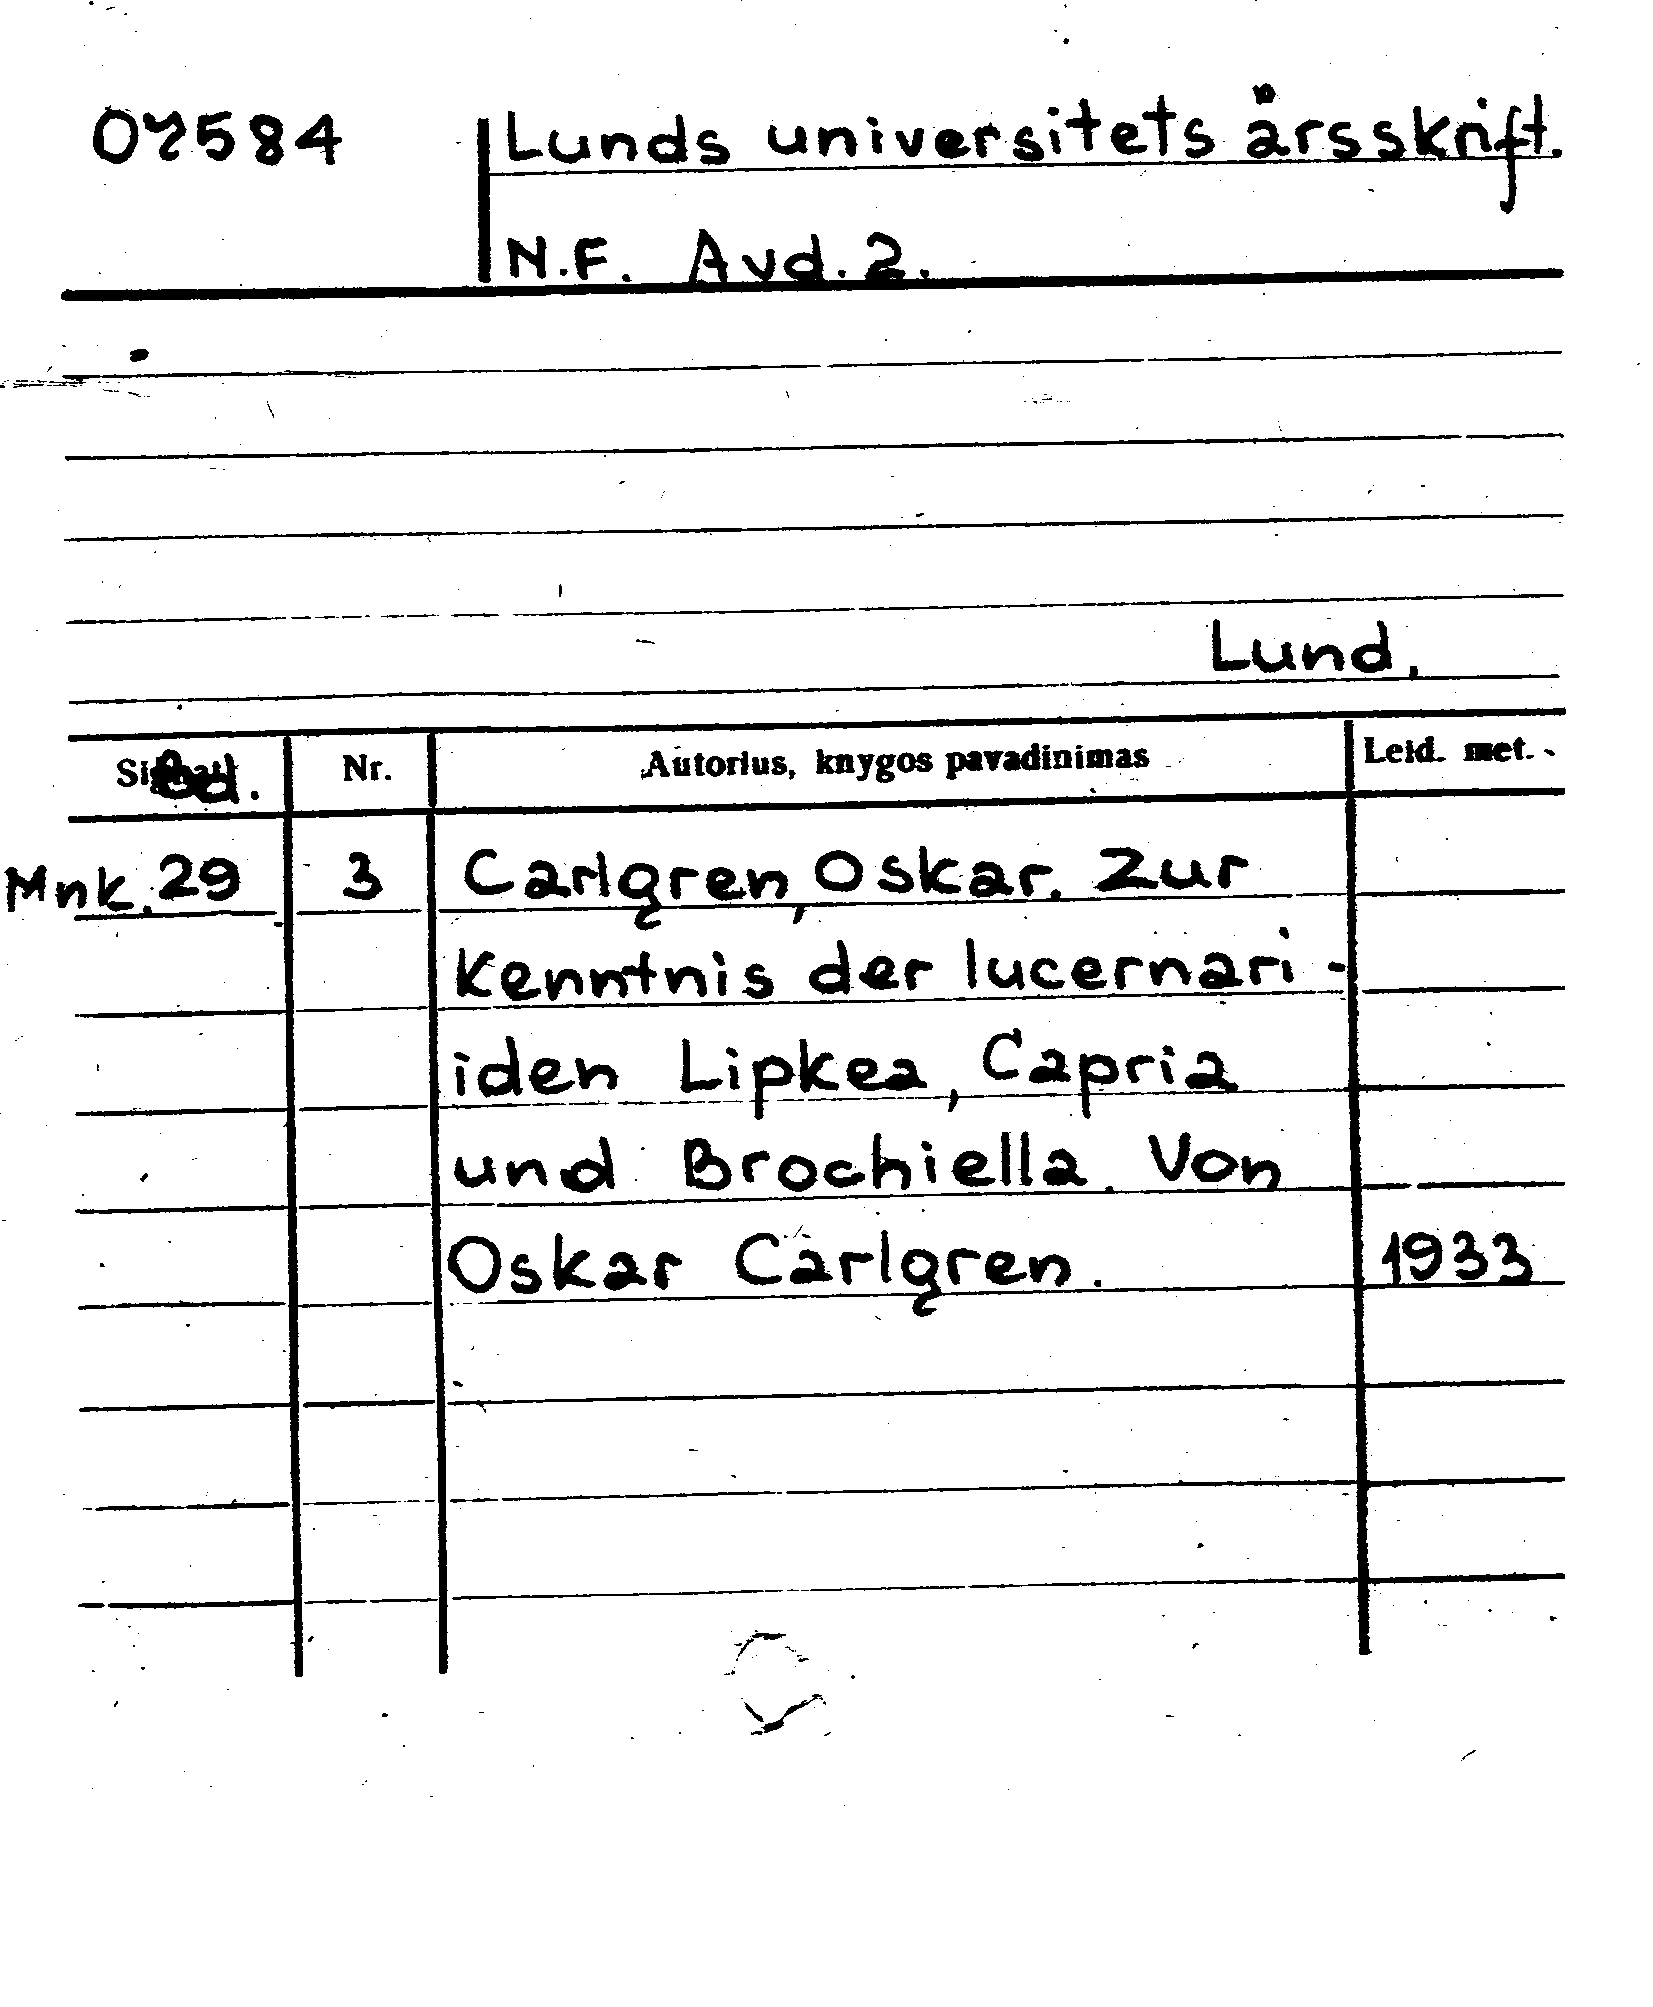 07584 Lunds universitets årsskrift.
N.F. Avd. 2.
Lund.
Bd. Nr. Autorius, knygos pavadinimas Leid. met.
Mnk. 29 3 Carlgren, Oskar. Zur
Kenntnis der lucernari-
iden Lipkea, Capria
und Brochiella. Von
Oskar Carlgren. 1933